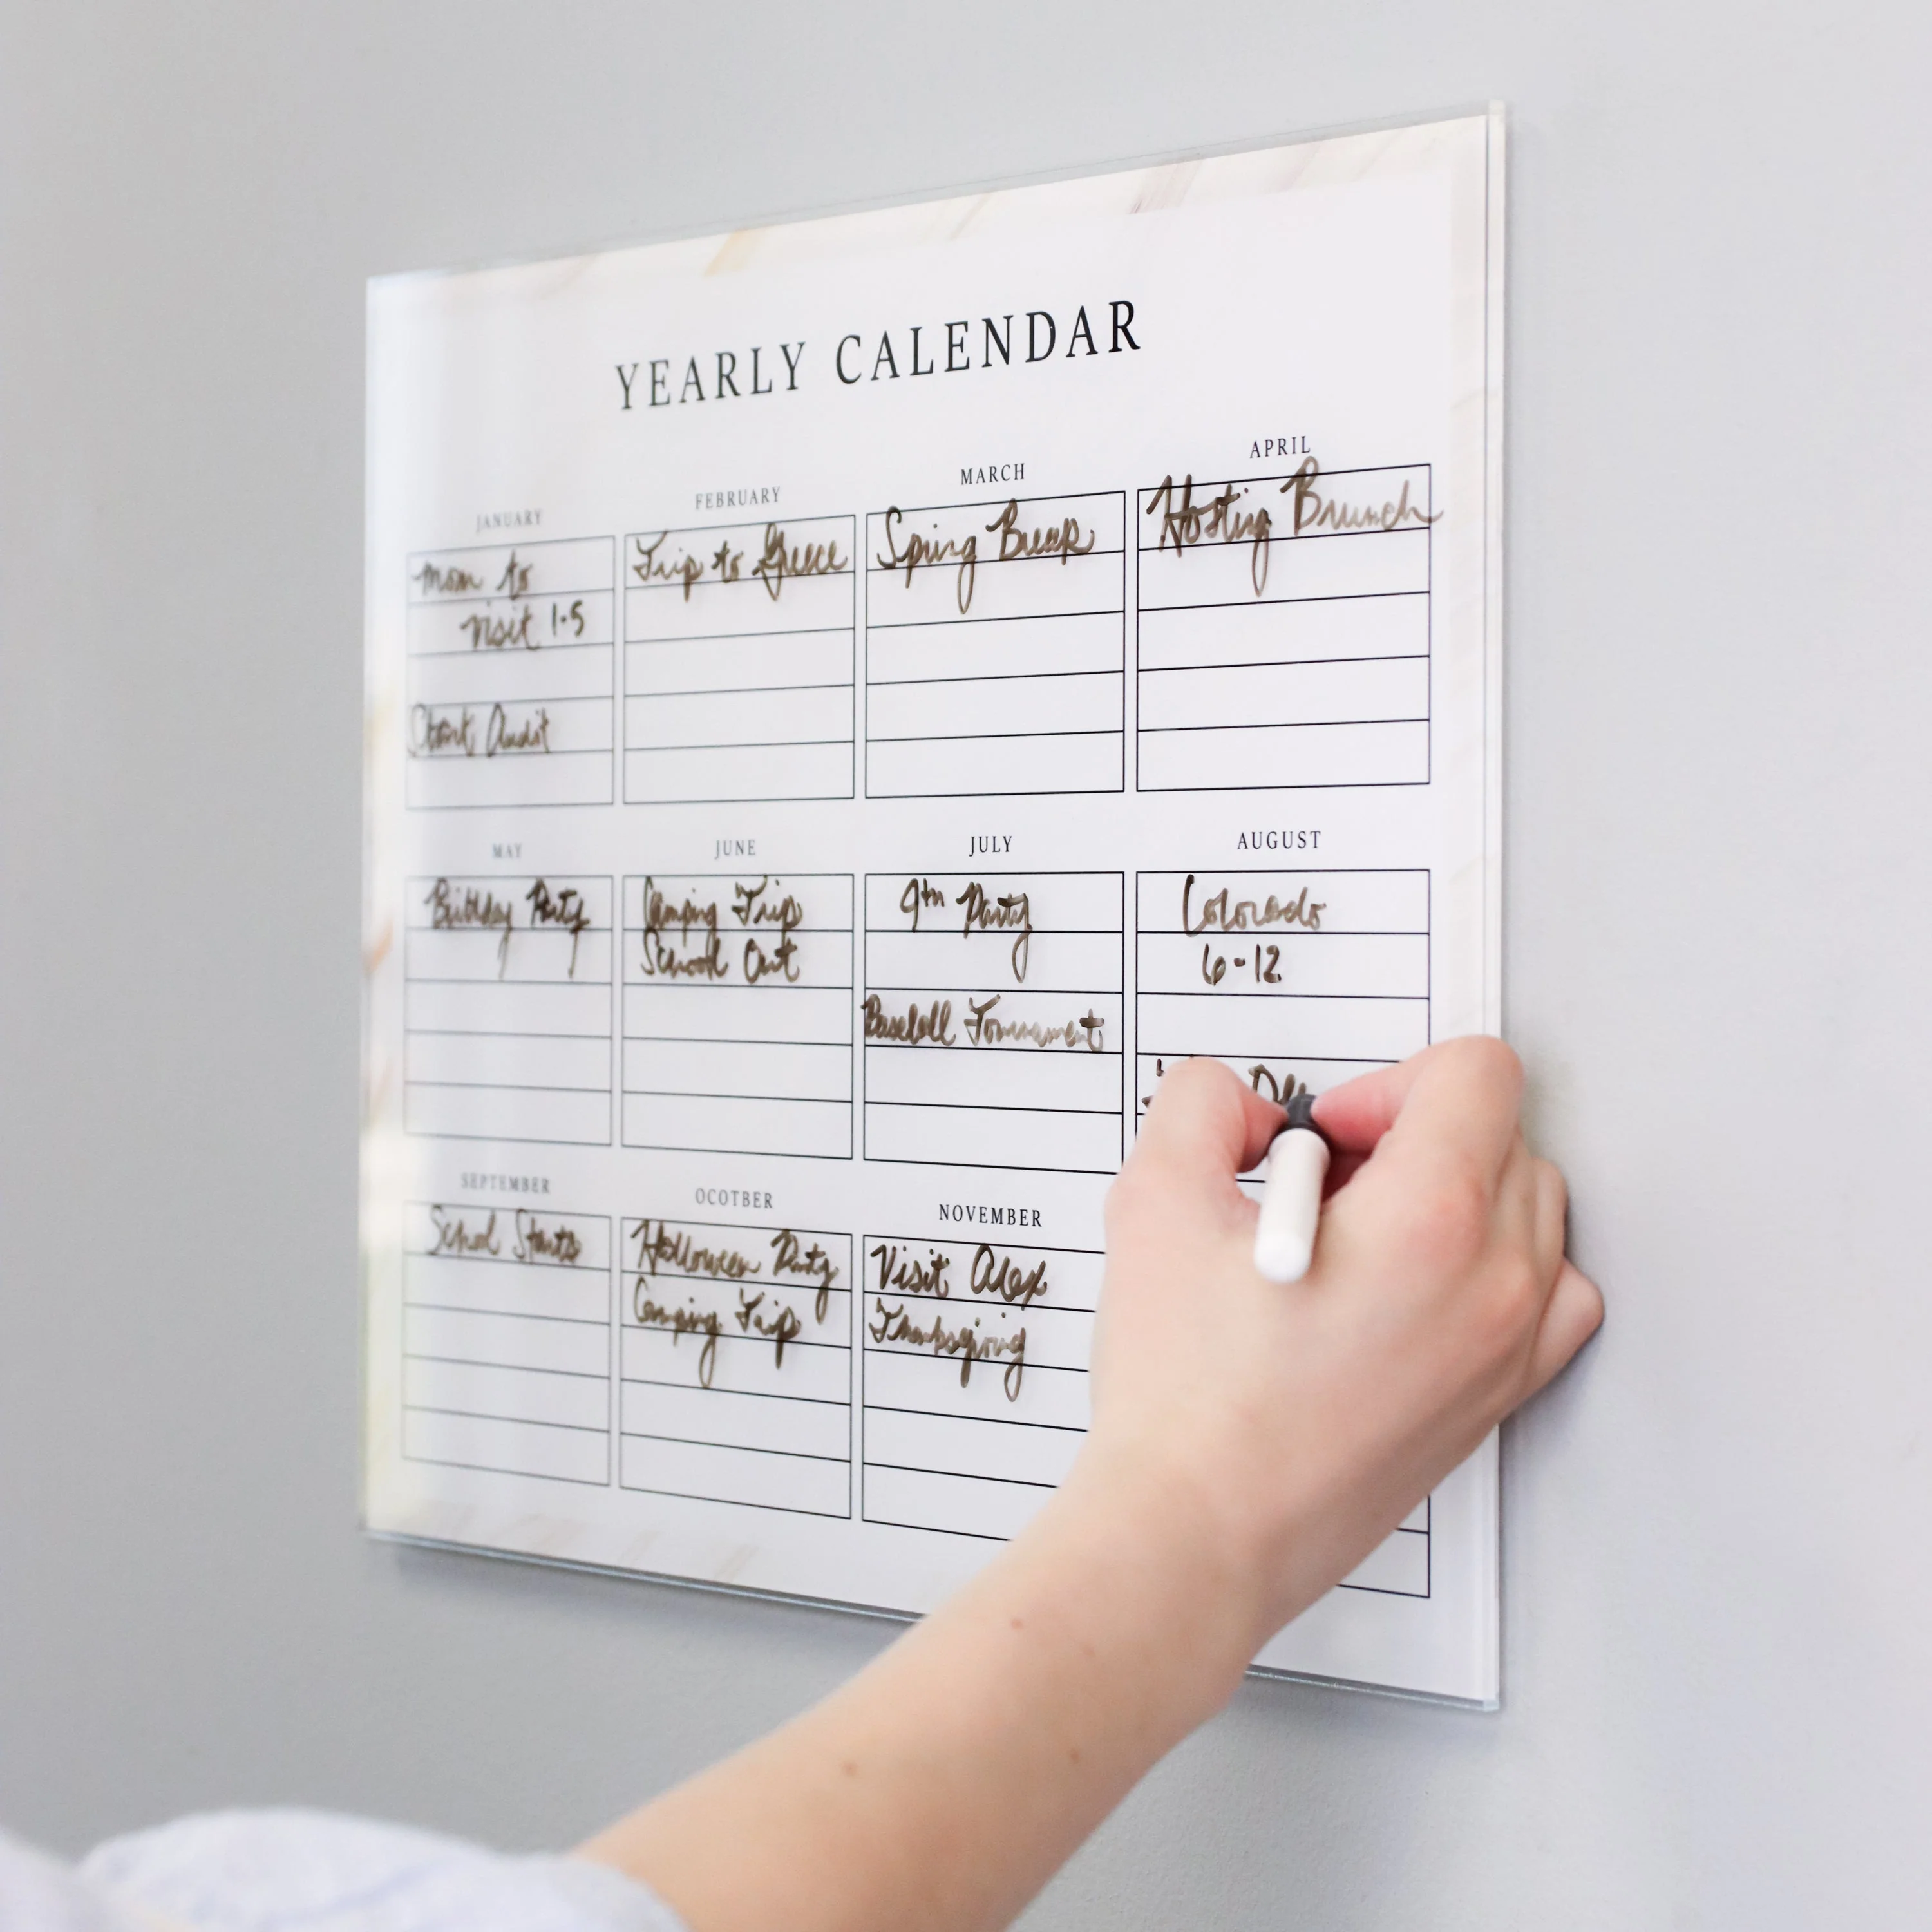 YEARLY CALENDAR
JANUARY
Mom to
visit 1-5
Start Audit
FEBRUARY
Trip to Greece
MARCH
Spring Break
APRIL
Hosting Brunch
MAY
Birthday Party
JUNE
Camping Trip
School Out
JULY
4th Party
Baseball Tournament
AUGUST
Colorado
6-12
SEPTEMBER
School Starts
OCOTBER
Halloween Party
Camping Trip
NOVEMBER
Visit Alex
Thanksgiving